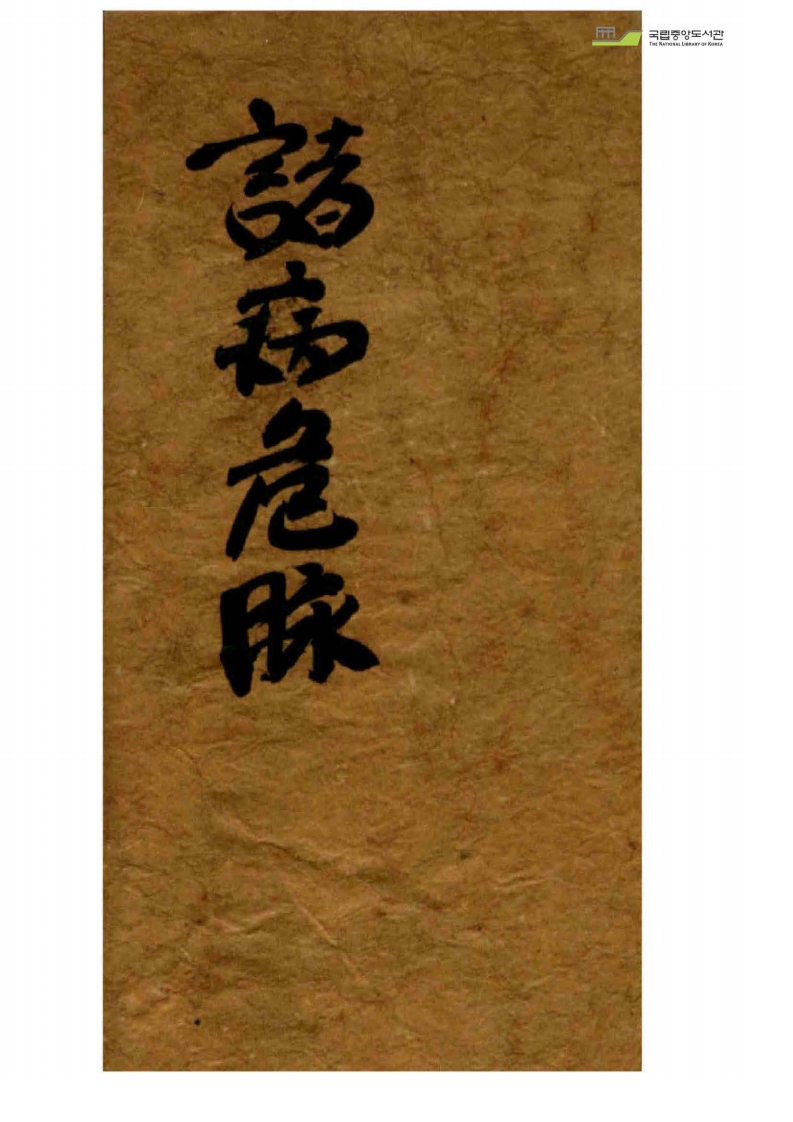 국립중앙도서관
THE NATIONAL LIBRARY OF KOREA
諸病危脉